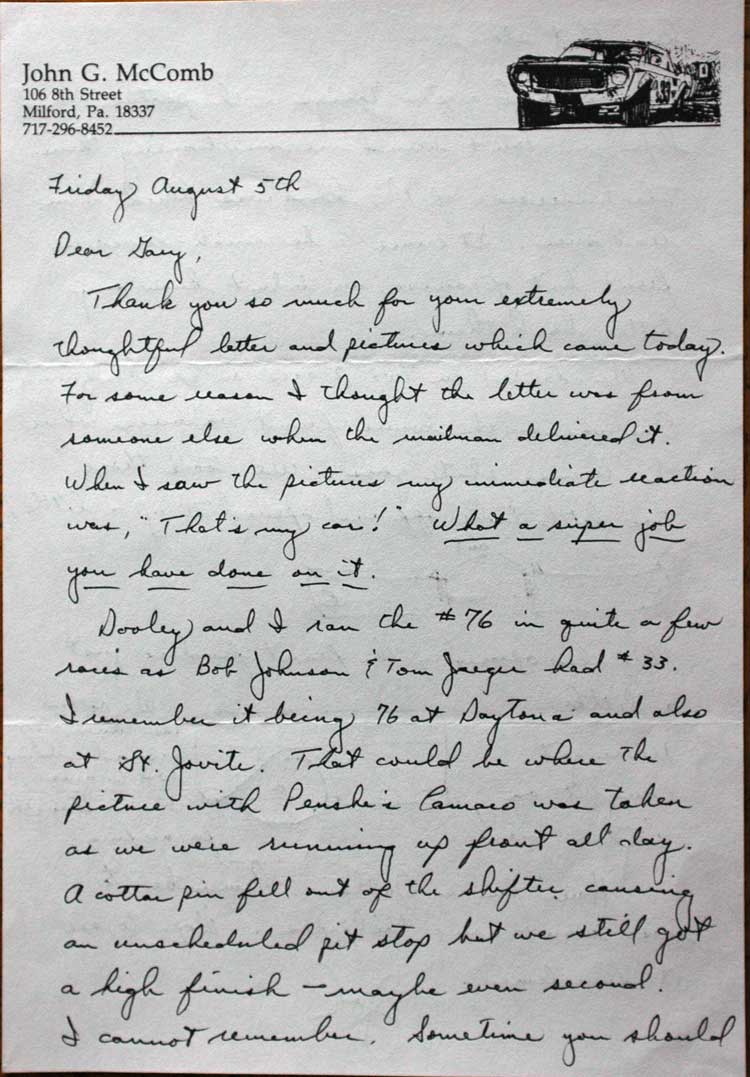 John G. McComb
106 8th Street
Milford, Pa. 18337
717-296-8452
33
Friday August 5th
Dear Gary,
Thank you so much for your extremely
thoughtful letter and pictures which came today.
For some reason I thought the letter was from
someone else when the mailman delivered it.
When I saw the pictures my immediate reaction
was, "That's my car!" What a super job
you have done on it.
Dooley and I ran the #76 in quite a few
races as Bob Johnson & Tom Jaeger had #33.
I remember it being 76 at Daytona and also
at St. Jovite. That could be where the
picture with Penske's Camaro was taken
as we were running up front all day.
A cotter pin fell out of the shifter causing
an unscheduled pit stop but we still got
a high finish - maybe even second.
I cannot remember. Sometime you should